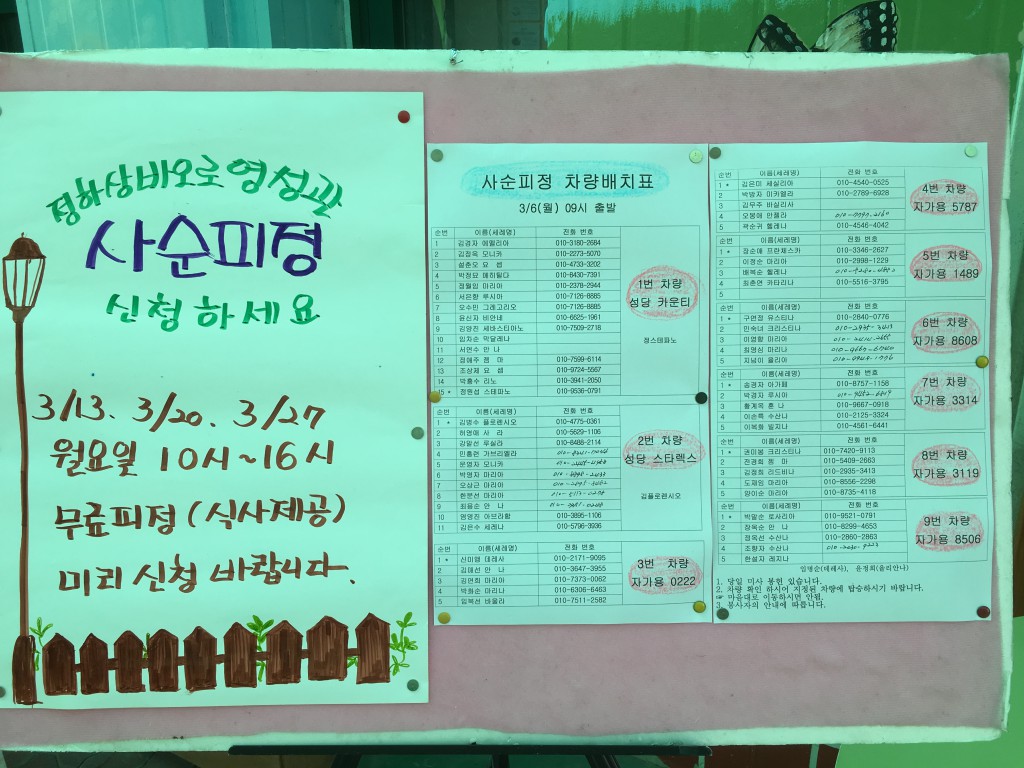 정하상바오로영성관
사순피정
신청하세요
3/13. 3/20. 3/27
월요일 10시~16시
무료피정 (식사제공)
미리 신청 바랍니다.
사순피정 차량배치표
3/6(월) 09시 출발
순번 이름(세례명) 전화 번호
1 김경자 에밀리아 010-3180-2684
2 김정옥 모니카 010-2273-5070
3 설춘모 요 셉 010-4733-3202
4 박정묘 메히틸다 010-8430-7391
5 정월임 마리아 010-2378-2944
6 서은향 루시아 010-7126-8885
7 오수민 그레고리오 010-7126-8885
8 윤신자 비안네 010-6525-1961
9 김양진 세바스티아노 010-7509-2718
10 임차순 막달레나
11 서연수 안 나
12 정애주 젬 마 010-7599-6114
13 조상제 요 셉 010-9724-5567
14 박홍수 리노 010-3941-2050
15 * 정원섭 스테파노 010-9536-0791
1번 차량
성당 카운티
정스테파노
순번 이름(세례명) 전화 번호
1 * 김병수 플로렌시오 010-4775-0361
2 허영애 사 라 010-5629-1106
3 강말선 루실라 010-8488-2114
4 민홍련 가브리엘라
5 문영자 모니카
6 박영자 마리아
7 모상근 마리아
8 한분선 마리아
9 최용순 안 나
10 명영진 아브라함 010-3895-1106
11 김은수 세레나 010-5796-3936
2번 차량
성당 스타렉스
김플로렌시오
순번 이름(세례명) 전화 번호
1 * 신미열 데레사 010-2171-9095
2 김애선 안 나 010-3647-3955
3 김연희 마리아 010-7373-0062
4 박희순 마리나 010-6306-6463
5 임복선 바울리 010-7511-2582
3번 차량
자가용 0222
순번 이름(세례명) 전화 번호
1 * 김은미 세실리아 010-4540-0525
2 박방자 미카엘라 010-2789-6928
3 김무주 바실리사
4 오봉애 안젤라
5 곽순귀 헬레나 010-4546-4042
4번 차량
자가용 5787
순번 이름(세례명) 전화 번호
1 * 정순애 프란체스카 010-3346-2627
2 이정순 마리아 010-2998-1229
3 배복순 헬레나
4 최춘연 카타리나 010-5516-3795
5
5번 차량
자가용 1489
순번 이름(세례명) 전화 번호
1 * 구연정 유스티나 010-2840-0776
2 민숙녀 크리스티나
3 이영향 마리아
4 최영심 마리나
5 지남이 율리아
6번 차량
자가용 8608
순번 이름(세례명) 전화 번호
1 * 송경자 아가페 010-8757-1158
2 박경자 루시아
3 황계옥 훈 나 010-9667-0918
4 이순록 수산나 010-2125-3324
5 이복희 빌지나 010-4561-6441
7번 차량
자가용 3314
순번 이름(세례명) 전화 번호
1 * 권미봉 크리스티나 010-7420-9113
2 전경희 젬 마 010-5409-2663
3 김정희 리드비나 010-2935-3413
4 도재임 마리아 010-8556-2298
5 양이순 마리아 010-8735-4118
8번 차량
자가용 3119
순번 이름(세례명) 전화 번호
1 * 박말순 로사리아 010-9521-0791
2 장옥순 안 나 010-8299-4653
3 정옥선 수산나 010-2860-2863
4 조향자 수산나
5 한설자 레지나
9번 차량
자가용 8506
임병순(데레사), 윤정희(율리안나)
1. 당일 미사 봉헌 있습니다.
2. 차량 확인 하시어 지정된 차량에 탑승하시기 바랍니다.
☞ 마음대로 이동하시면 안됨.
3. 봉사자의 안내에 따릅니다.